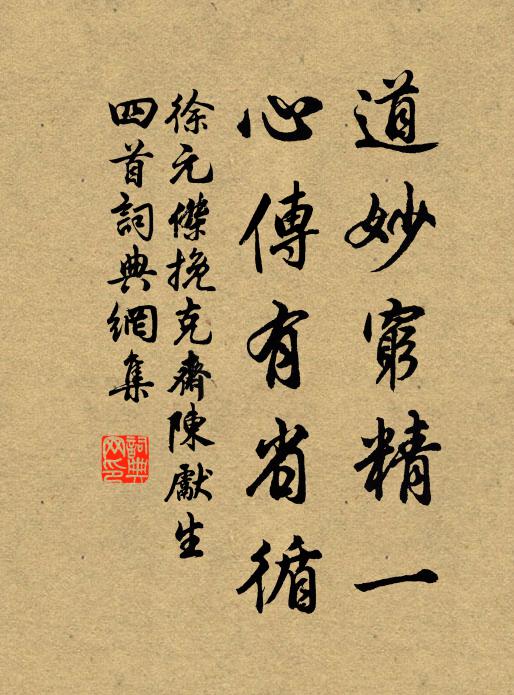 道妙窮精一
心傳有省循
徐元傑挽克齋陳獻生
四首詞典網集
詞典网印